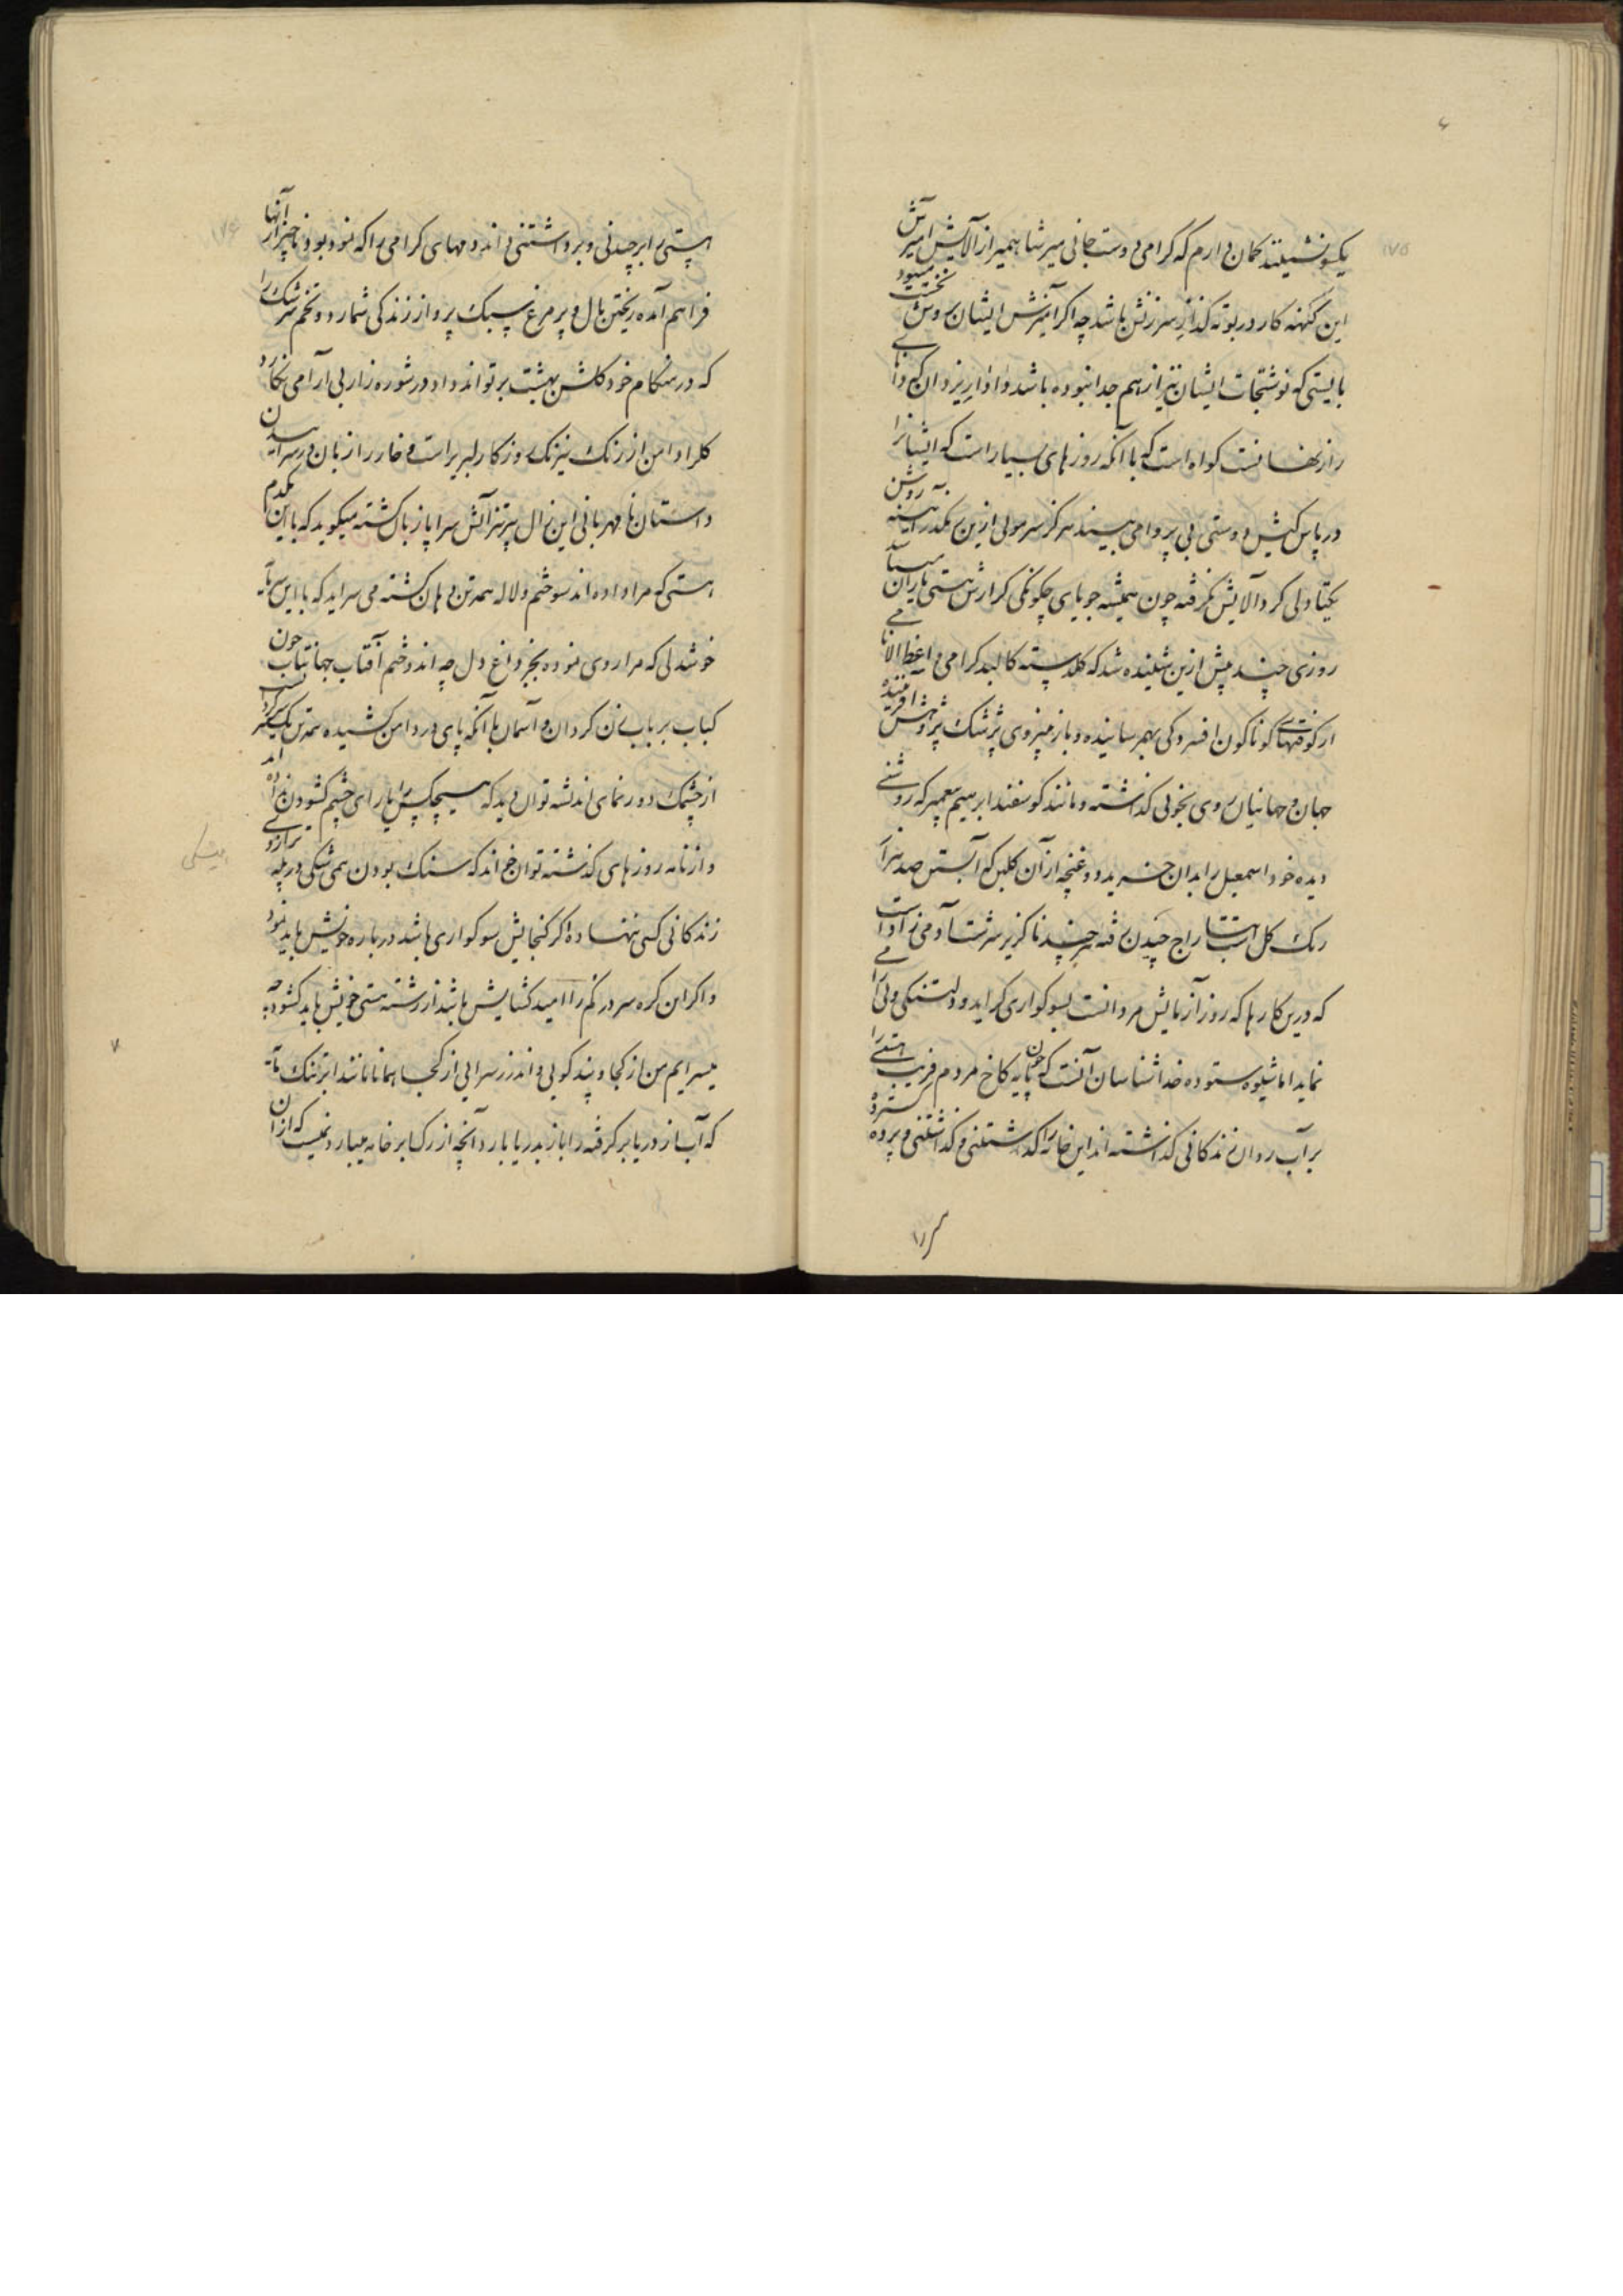 یکسو نشینند کمان دارم که کرامی دوست جانی میر شاهمیر از آلایش آمیزش
این کهنه کار در بوته کداز سرزنش باشد چه اکر آمیزش ایشان روش نخست میبود
بایستی که نوشتجات ایشان نیز از هم جدا نبوده باشد و دادار یزدان که دانای
راز نهانست کواه است که با آنکه روزهای بسیار است که ایشانرا
در پاس کیش دوستی بی پروا می بیند هرکز سر مویی ازین مکدر آینه روشن
یکتا دلی کرد آلایش نکرفته چون همیشه جویای چکونکی کزارش هستی یاران میباشد
روزی چند پیش ازین شنیده شد که کلدسته کالبد کرامی
از کوفتهای کوناکون افسردکی بهم رسانیده و باز میزوی پزشک پژوهش آفریننده
جهان و جهانیان روی بخوبی کذاشته و مانند کوسفند ابرهیم پیغمبر که روشنی
دیده خود اسمعیل را بدان خرید و غنچه از آن کلبن که آبستن صد هزار
رنک کل است بتاراج چیدن رفته هر چند ناکزیر سرشت آدمی زاد است
که درین کارها که روز آزمایش مردانست بسوکواری کراید و دلتنکی
نماید اما شیوه ستوده خدا شناسان آنست که چون پایه کاخ مردم فریب هستی را
بر آب روان زندکانی کذاشته اند این خانه را کذاشتنی و کذاشتنی و پرده
هستی را برچیدنی و برداشتنی دانند دمهای کرامی را که نمود بود ناچیز از آنها
فراهم آمده ریختن بال و پر مرغ سبک پرواز زندکی شمارد و تخم سرشک را
که در هنکام خود کلشن بهشت بر تواند داد در شوره زار بی آرامی نکارد
کل را دامن از رنک نیرنک روزکار لبریز است و خار را زبان در سراییدن
داستان نامهربانی این زال پیر تیز آتش سراپا زبان کشته میکوید که با این یکدم
هستی که مرا داده اند سوختم و لاله همه تن دهان کشته می سراید که با این
خوشدلی که مرا روی نموده بجز داغ دل چه اندوختم آفتاب جهانتاب چون
کباب بر بابزن کردان و آسمان با آنکه پای در دامن کشیده همه تن یکسر
از چشمک دورنمای اندیشه توان دید که هیچکس را یارای چشم کشودن نداده اند
و از نامه روزهای کذشته توان خواند که سنک بودن همیشکی در پله ترازوی
زندکانی کسی ننهاده اکر کنجایش سوکواری باشد درباره خویش باید نمود
و اکر این کره سر در کم را امید کشایش باشد از رشته هستی خویش باید کشود چه
میسرایم من از کجا و پند کویی و اندرز سرایی از کجا همانا مانند ابر تنک مایه
که آب از دریا برکرفته را باز بدریا بارد آنچه از رک ابر خامه میبارد نیست که از آن
۱۷۵
۱۷۶
همیشکی
۷